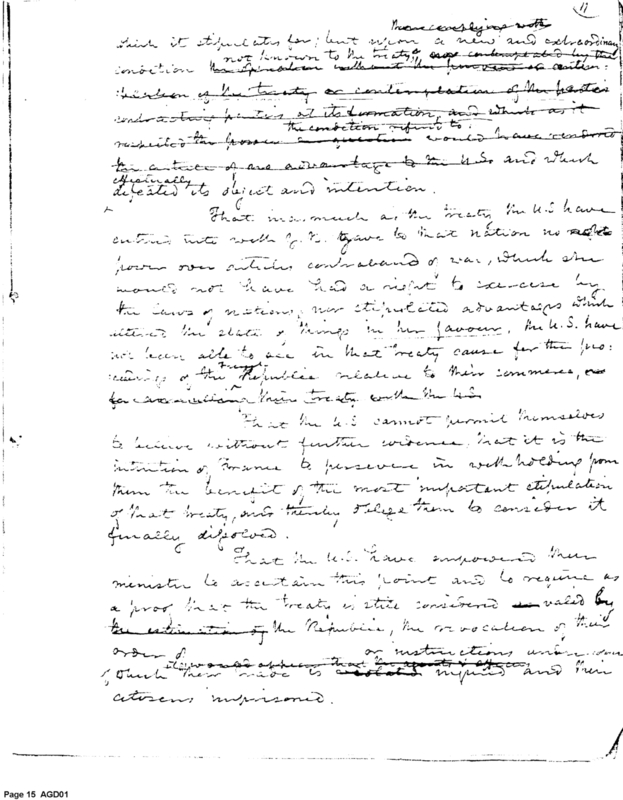 17
than complying with
which it stipulates for; but upon a new and extraordinary
not known to the treaty
condition
the treaty or contemplation of the parties
contracting parties at its formation, and which as it
the condition refered to
respected the power in question would have rendered
the article of no advantage to the U.S. and which
effectually
defeated its object and intention.
That inasmuch as the treaty the U.S. have
entered into with G. B. gave to that nation no
power over articles contraband of war, which she
would not have had a right to exercise by
the laws of nations, nor stipulated advantages which
altered the state of things in her favour, the U.S. have
not been able to see in that treaty cause for the pro:
ceedings of the French Republic relative to their commerce, or
for their treaty with the U.S.
That the U.S. cannot permit themselves
to believe without further evidence, that it is the
intention of France to persevere in withholding from
them the benefit of the most important stipulation
of that treaty, and thereby oblige them to consider it
finally dissolved.
That the U.S. have empowered their
minister to ascertain this point and to require as
a proof that the treaty is still considered valid by
the estimation of the Republic, the revocation of their
order of or instructions under
it would appear that
which their trade is violated injured and their
citizens imprisoned.
Page 15 AGD01